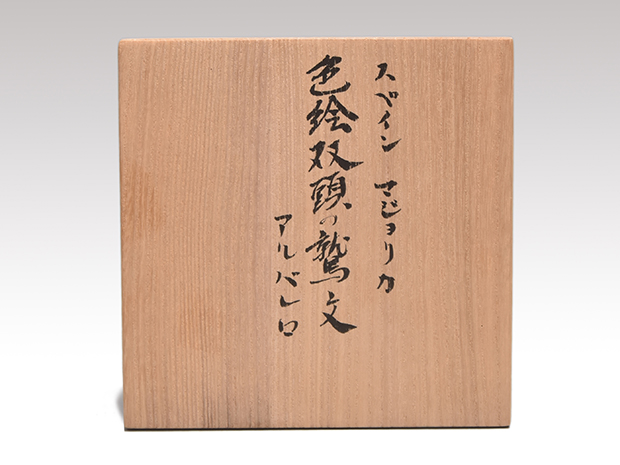 スペイン マジョリカ
色絵双頭の鷲文
アルバレロ